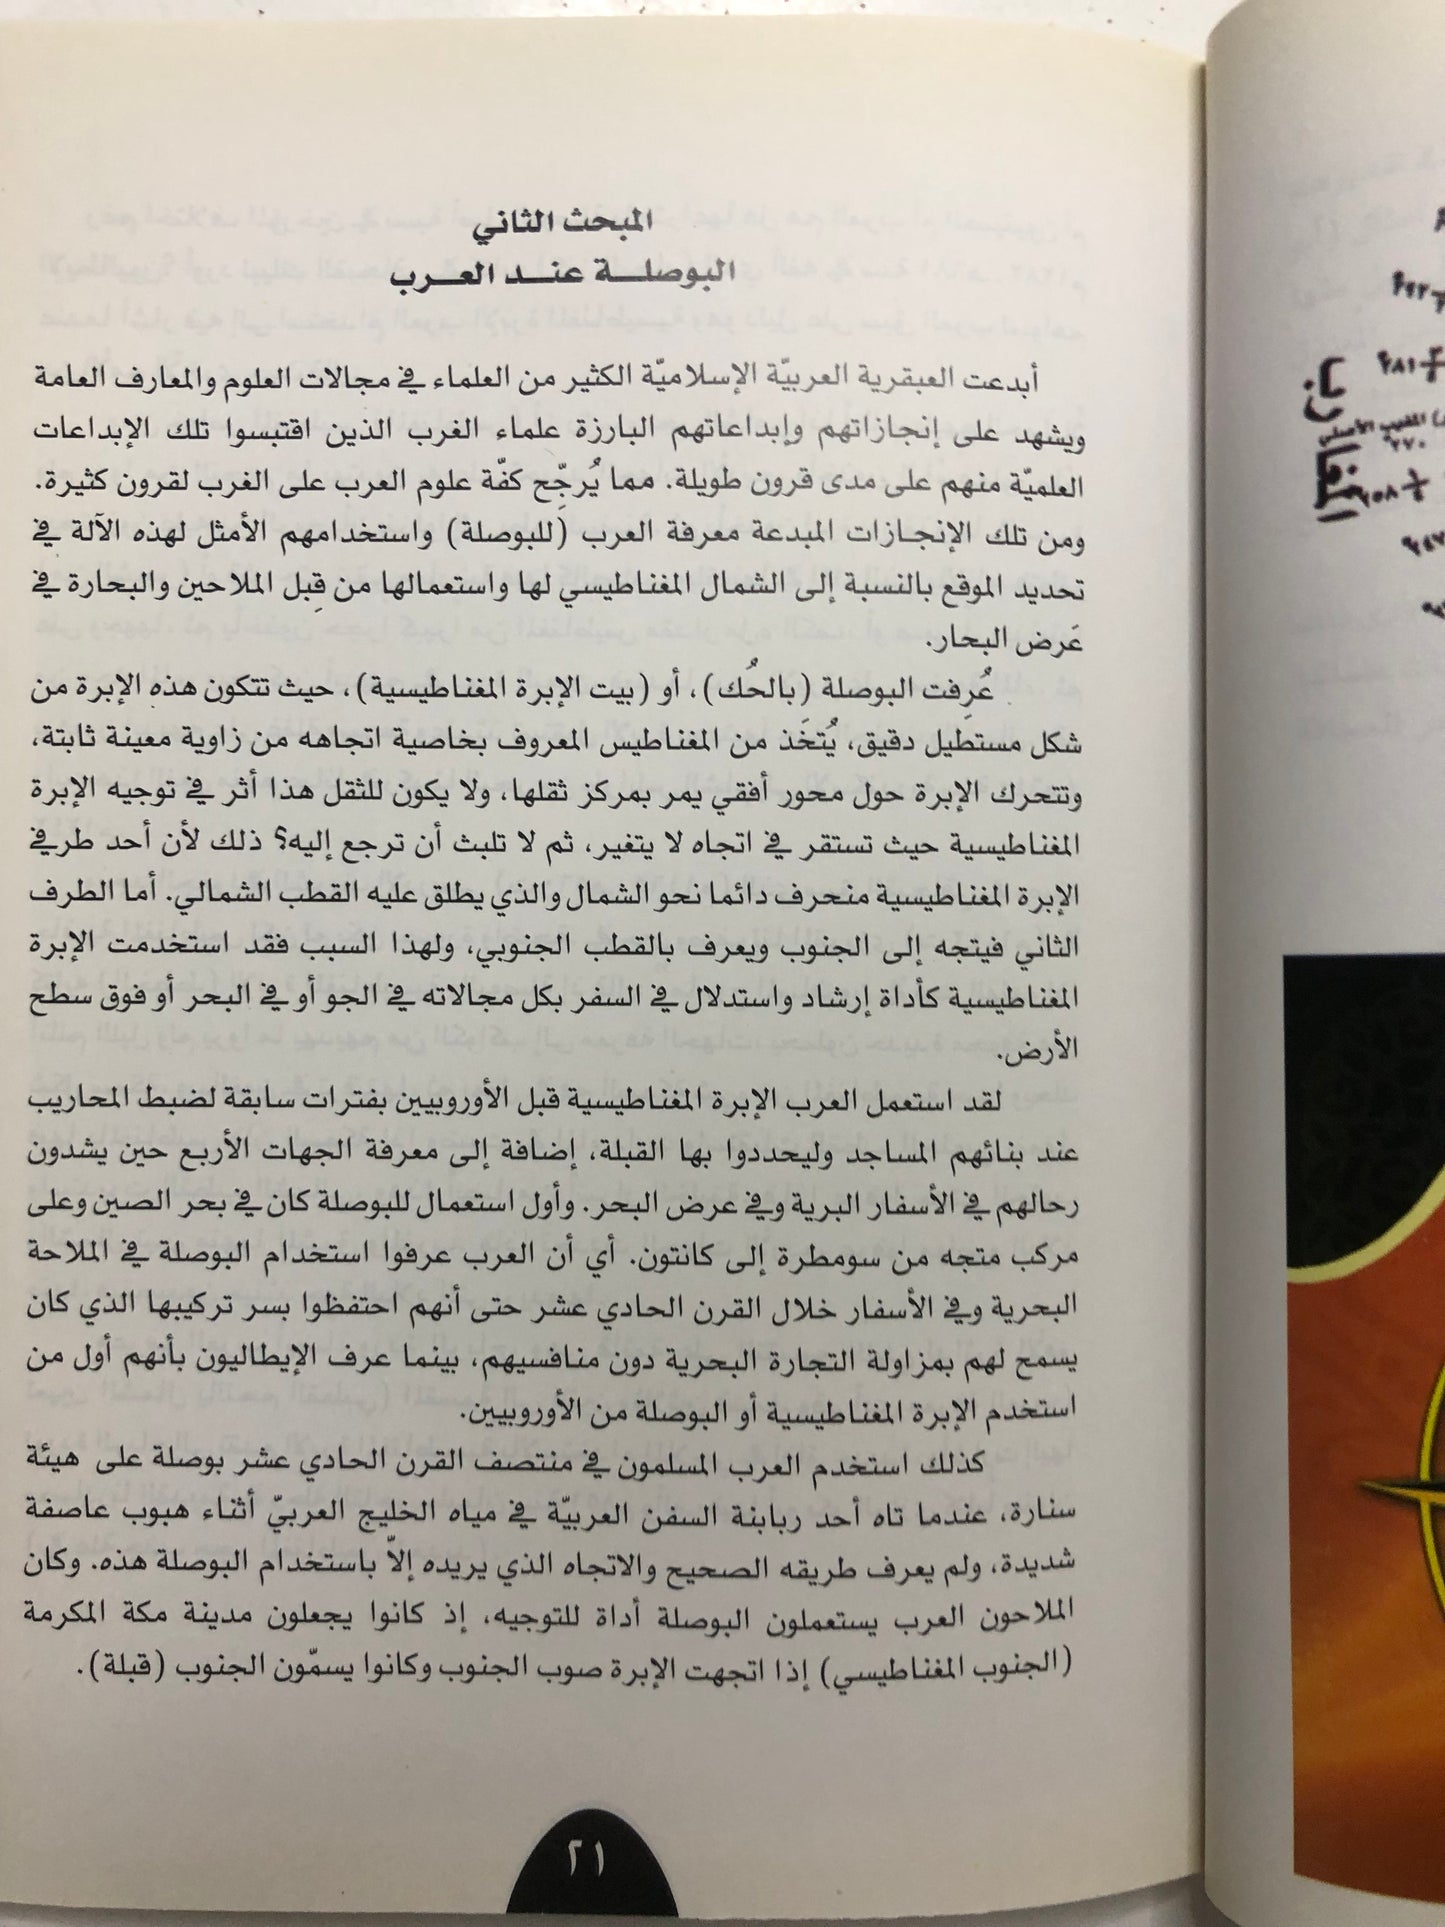 المبحث الثاني
البوصلـــة عنـــد العـــرب
أبدعت العبقرية العربيّة الإسلاميّة الكثير من العلماء في مجالات العلوم والمعارف العامة
ويشهد على إنجازاتهم وإبداعاتهم البارزة علماء الغرب الذين اقتبسوا تلك الإبداعات
العلميّة منهم على مدى قرون طويلة. مما يُرجِّح كفّة علوم العرب على الغرب لقرون كثيرة.
ومن تلك الإنجـازات المبدعة معرفة العرب (للبوصلة) واستخدامهم الأمثل لهذه الآلة في
تحديد الموقع بالنسبة إلى الشمال المغناطيسي لها واستعمالها من قِبل الملاحين والبحارة في
عَرض البحار.
عُرِفت البوصلة (بالحُك)، أو (بيت الإبرة المغناطيسية)، حيث تتكون هذه الإبرة من
شكل مستطيل دقيق، يُتخَذ من المغناطيس المعروف بخاصية اتجاهه من زاوية معينة ثابتة،
وتتحرك الإبرة حول محور أفقي يمر بمركز ثقلها، ولا يكون للثقل هذا أثر في توجيه الإبرة
المغناطيسية حيث تستقر في اتجاه لا يتغير، ثم لا تلبث أن ترجع إليه؟ ذلك لأن أحد طرفي
الإبرة المغناطيسية منحرف دائما نحو الشمال والذي يطلق عليه القطب الشمالي. أما الطرف
الثاني فيتجه إلى الجنوب ويعرف بالقطب الجنوبي، ولهذا السبب فقد استخدمت الإبرة
المغناطيسية كأداة إرشاد واستدلال في السفر بكل مجالاته في الجو أو في البحر أو فوق سطح
الأرض.
لقد استعمل العرب الإبرة المغناطيسية قبل الأوروبيين بفترات سابقة لضبط المحاريب
عند بنائهم المساجد وليحددوا بها القبلة، إضافة إلى معرفة الجهات الأربع حين يشدون
رحالهم في الأسفار البرية وفي عرض البحر. وأول استعمال للبوصلة كان في بحر الصين وعلى
مركب متجه من سومطرة إلى كانتون. أي أن العرب عرفوا استخدام البوصلة في الملاحة
البحرية وفي الأسفار خلال القرن الحادي عشر حتى أنهم احتفظوا بسر تركيبها الذي كان
يسمح لهم بمزاولة التجارة البحرية دون منافسيهم، بينما عرف الإيطاليون بأنهم أول من
استخدم الإبرة المغناطيسية أو البوصلة من الأوروبيين.
كذلك استخدم العرب المسلمون في منتصف القرن الحادي عشر بوصلة على هيئة
سنارة، عندما تاه أحد ربابنة السفن العربيّة في مياه الخليج العربيّ أثناء هبوب عاصفة
شديدة، ولم يعرف طريقه الصحيح والاتجاه الذي يريده إلاّ باستخدام البوصلة هذه. وكان
الملاحون العرب يستعملون البوصلة أداة للتوجيه، إذ كانوا يجعلون مدينة مكة المكرمة
(الجنوب المغناطيسي) إذا اتجهت الإبرة صوب الجنوب وكانوا يسمّون الجنوب (قبلة).
٢١
المغارب